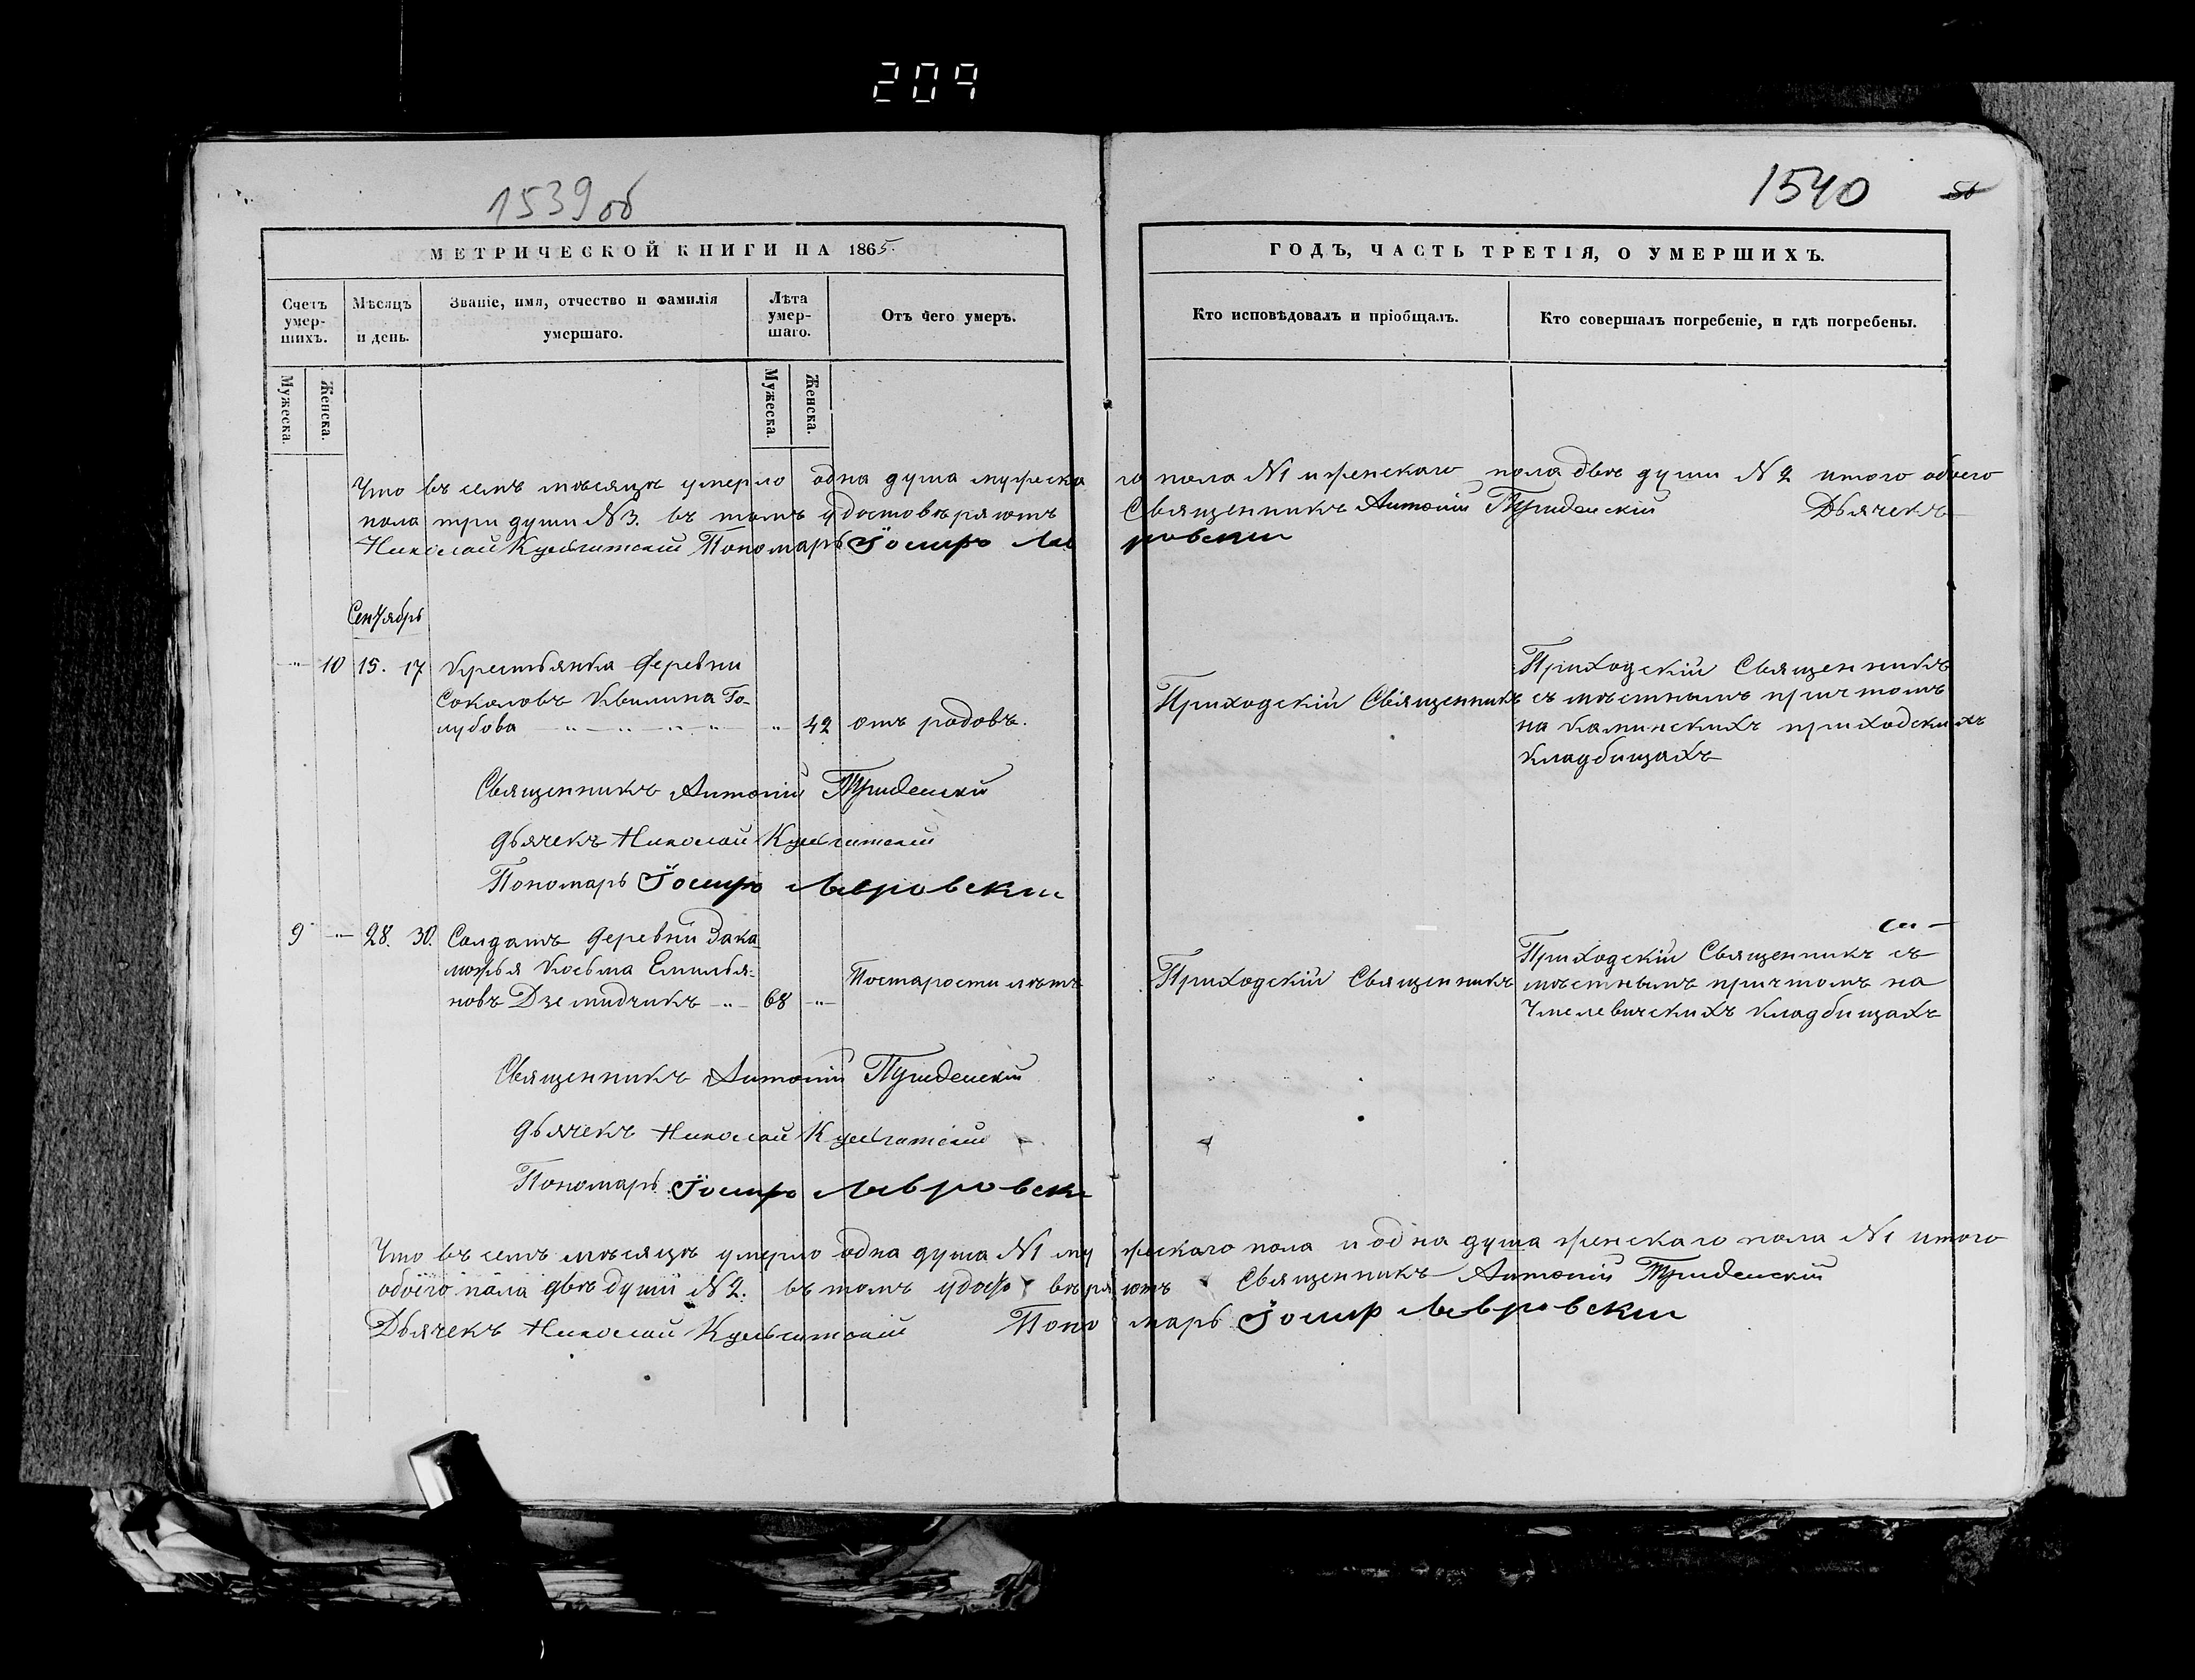 209
1539об
1540
МЕТРИЧЕСКОЙ КНИГИ НА 1865.
ГОДЪ, ЧАСТЬ ТРЕТІЯ, О УМЕРШИХЪ.
Счетъ умер-шихъ.
Мѣсяцъ и день.
Званіе, имя, отчество и фамилія умершаго.
Лѣта умер-шаго.
Отъ чего умеръ.
Кто исповѣдовалъ и пріобщалъ.
Кто совершалъ погребеніе, и гдѣ погребены.
Мужеска.
Женска.
Мужеска.
Женска.
Что въ семъ мѣсяцѣ умерло одна душа мужеска го пола №1 и женскаго пола двѣ души №2 итого обоего
пола три души №3. въ томъ удостовѣряютъ Священникъ Антоній Дьячекъ
Николай Пономарь Іосифъ Лавровскій
Сентябрь
10 15. 17 Крестьянка деревни
Соколовъ Квилина Го-
лубова 42 отъ родовъ.
Приходскій Священникъ
Приходскій Священникъ
съ мѣстнымъ причтомъ
на Каминскихъ приходскихъ
кладбищахъ
Священникъ Антоній
дьячекъ Николай
Пономарь Іосифъ Лавровскій
9 28. 30. Солдатъ деревни Зака-
можья Косьма Емилья-
новъ Дземидчикъ 68
По старости лѣтъ
Приходскій Священникъ
Приходскій Священникъ съ
мѣстнымъ причтомъ на
Чмелевичскихъ кладбищахъ
Священникъ Антоній
дьячекъ Николай
Пономарь Іосифъ Лавровскій
Что въ семъ мѣсяцѣ умерло одна душа №1 мужескаго пола и одна душа женскаго пола №1 итого
обоего пола двѣ души №2. въ томъ удостовѣряютъ Священникъ Антоній
Дьячекъ Николай Пономарь Іосифъ Лавровскій